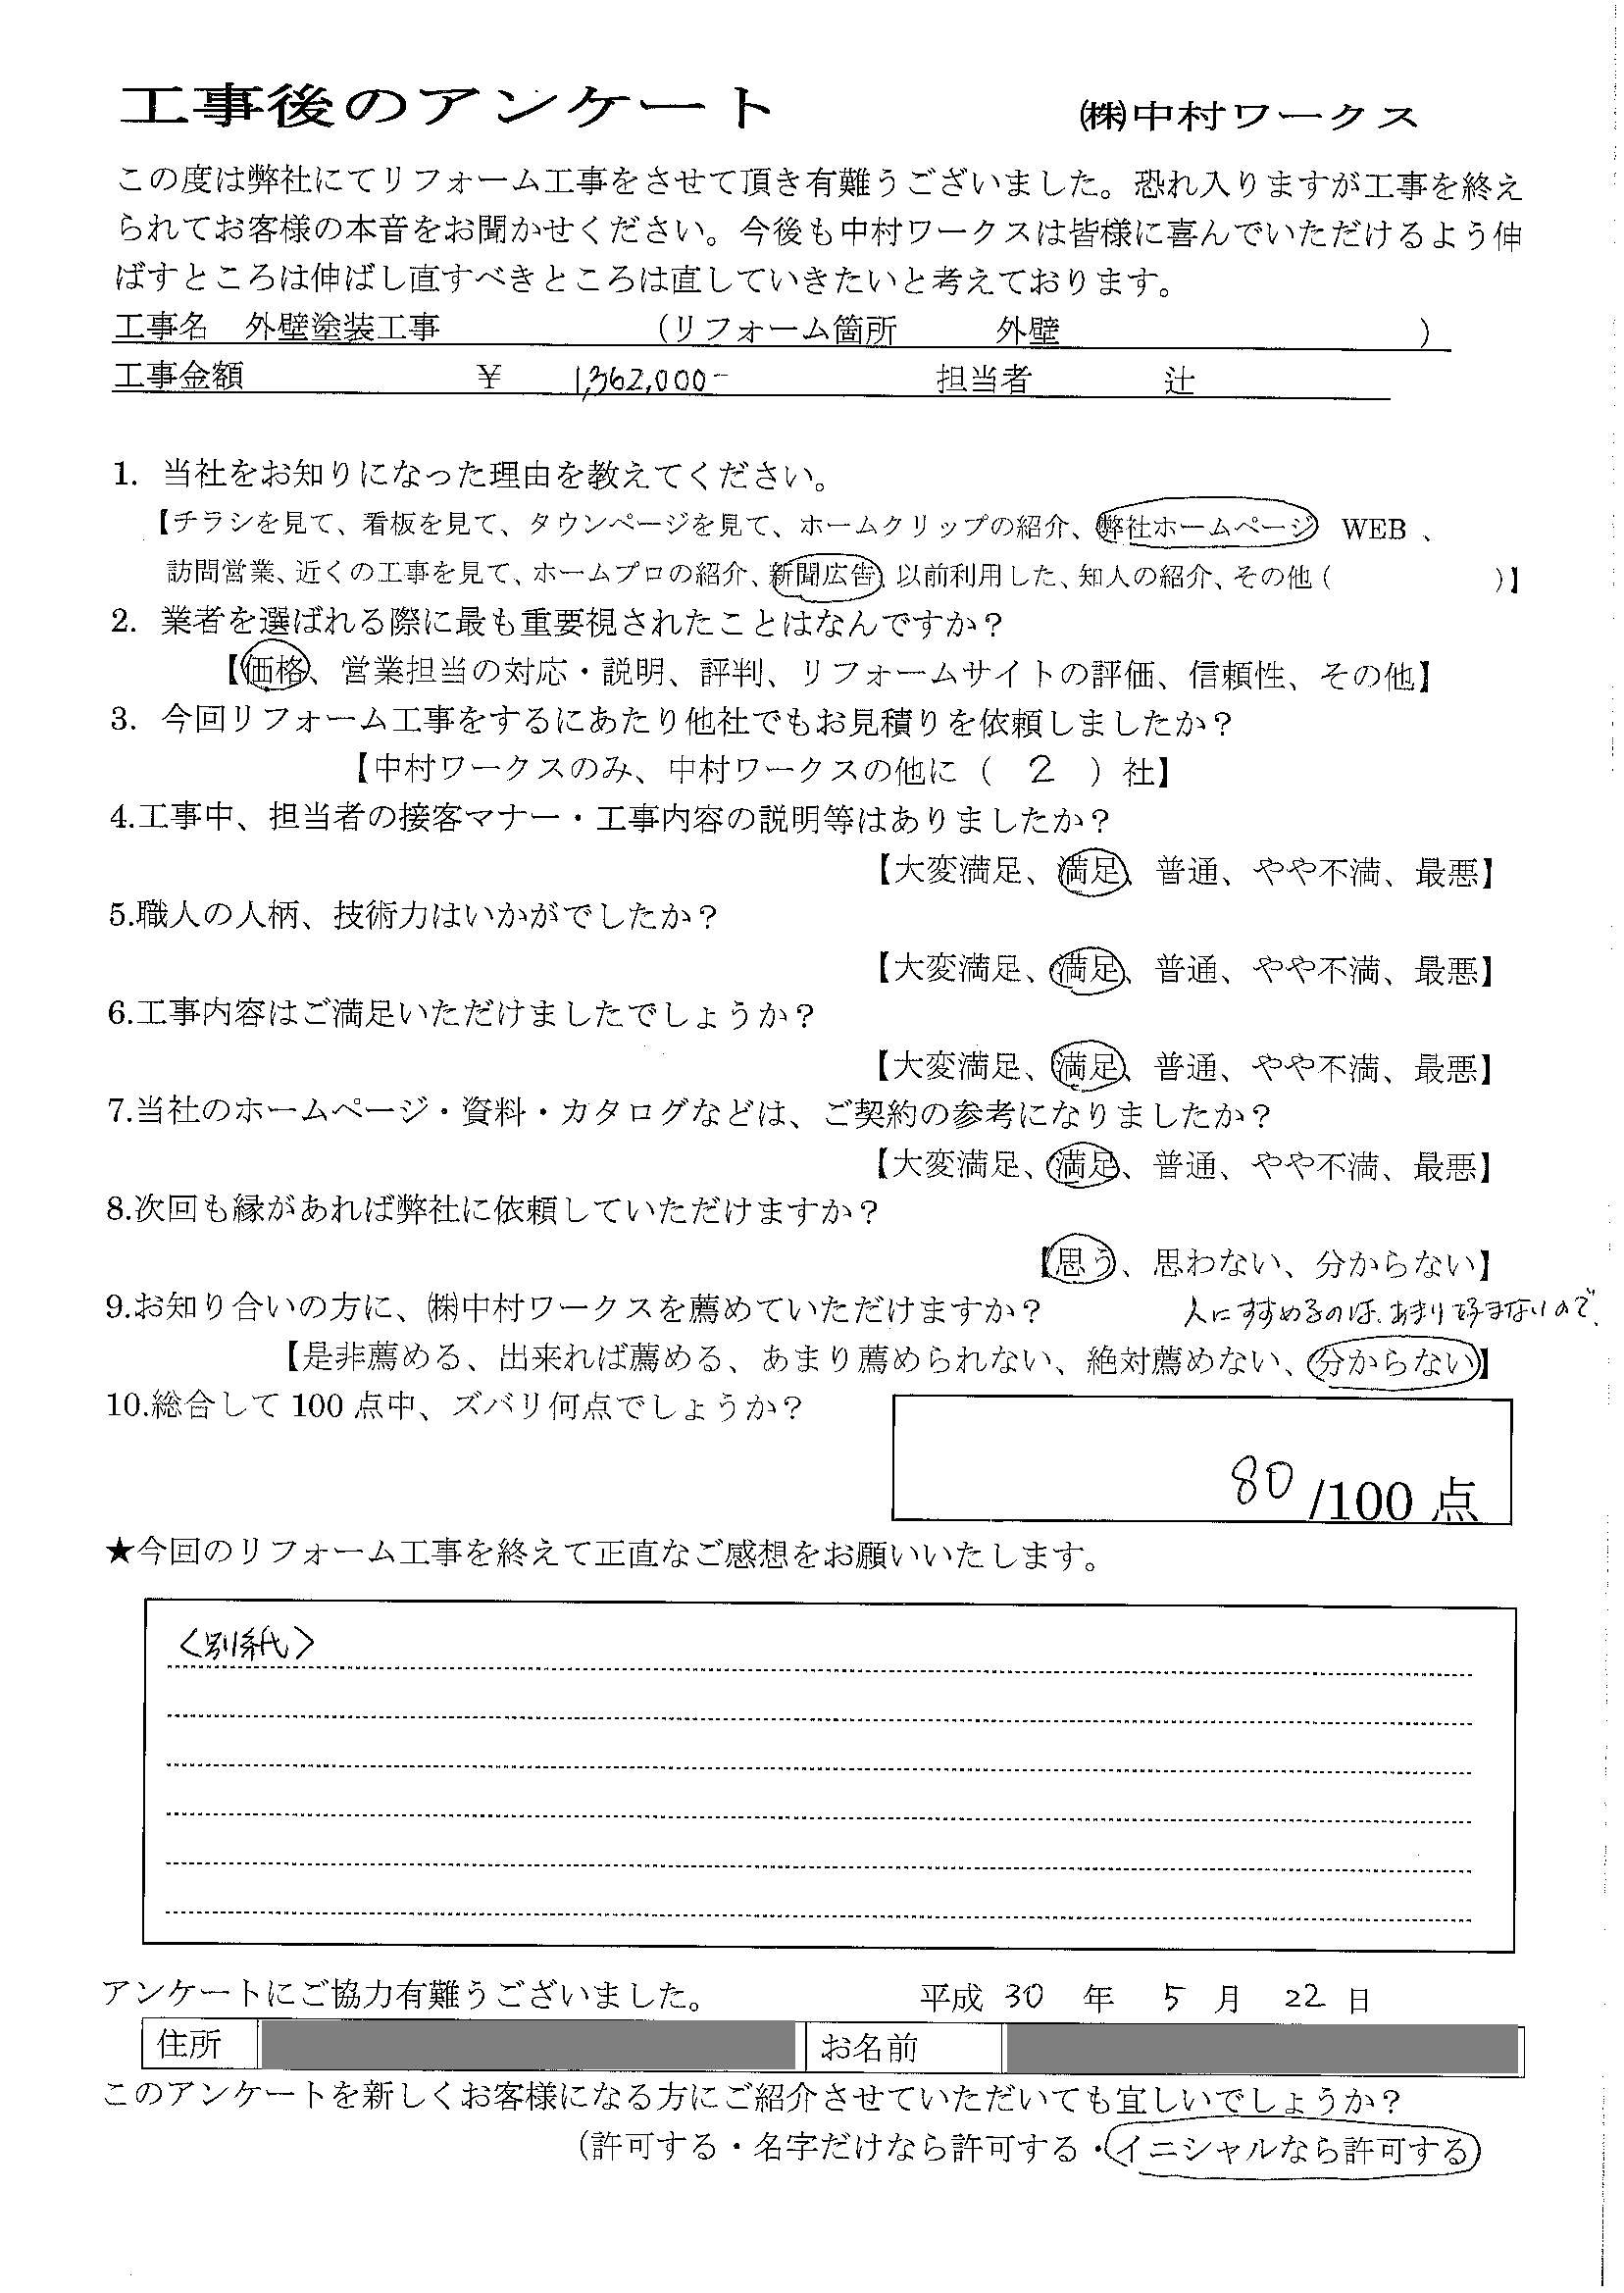 工事後のアンケート ㈱中村ワークス
この度は弊社にてリフォーム工事をさせて頂き有難うございました。恐れ入りますが工事を終え
られてお客様の本音をお聞かせください。今後も中村ワークスは皆様に喜んでいただけるよう伸
ばすところは伸ばし直すべきところは直していきたいと考えております。
工事名 外壁塗装工事 (リフォーム箇所 外壁 )
工事金額 ¥ 1,362,000- 担当者 辻
1. 当社をお知りになった理由を教えてください。
【チラシを見て、看板を見て、タウンページを見て、ホームクリップの紹介、弊社ホームページ WEB 、
訪問営業、近くの工事を見て、ホームプロの紹介、新聞広告、以前利用した、知人の紹介、その他 ( )】
2. 業者を選ばれる際に最も重要視されたことはなんですか？
【価格、営業担当の対応・説明、評判、リフォームサイトの評価、信頼性、その他】
3. 今回リフォーム工事をするにあたり他社でもお見積りを依頼しましたか？
【中村ワークスのみ、中村ワークスの他に ( 2 ) 社】
4.工事中、担当者の接客マナー・工事内容の説明等はありましたか？
【大変満足、満足、普通、やや不満、最悪】
5.職人の人柄、技術力はいかがでしたか？
【大変満足、満足、普通、やや不満、最悪】
6.工事内容はご満足いただけましたでしょうか？
【大変満足、満足、普通、やや不満、最悪】
7.当社のホームページ・資料・カタログなどは、ご契約の参考になりましたか？
【大変満足、満足、普通、やや不満、最悪】
8.次回も縁があれば弊社に依頼していただけますか？
【思う、思わない、分からない】
9.お知り合いの方に、㈱中村ワークスを薦めていただけますか？ 人にすすめるのは、あまり好まないので、
【是非薦める、出来れば薦める、あまり薦められない、絶対薦めない、分からない】
10.総合して 100 点中、ズバリ何点でしょうか？
80 /100 点
★今回のリフォーム工事を終えて正直なご感想をお願いいたします。
〈別紙〉
アンケートにご協力有難うございました。 平成 30 年 5 月 22 日
住所 お名前
このアンケートを新しくお客様になる方にご紹介させていただいても宜しいでしょうか？
(許可する・名字だけなら許可する・イニシャルなら許可する)